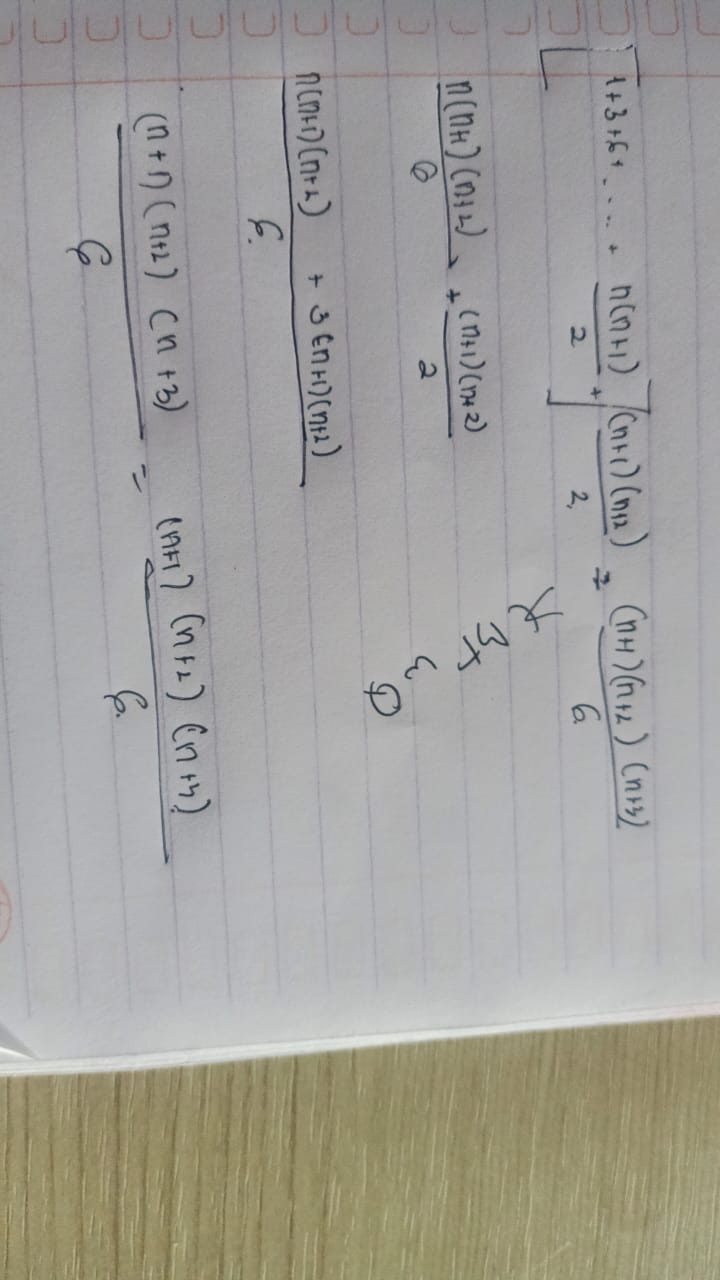 [1+3+6+ ..... + n(n+1)/2 +] (n+1)(n+2)/2 = (n+1)(n+2)(n+3)/6
n(n+1)(n+2)/6 + (n+1)(n+2)/2
n(n+1)(n+2) + 3(n+1)(n+2)/6.
(n+1)(n+2)(n+3)/6 = (n+1)(n+2)(n+3)/6.